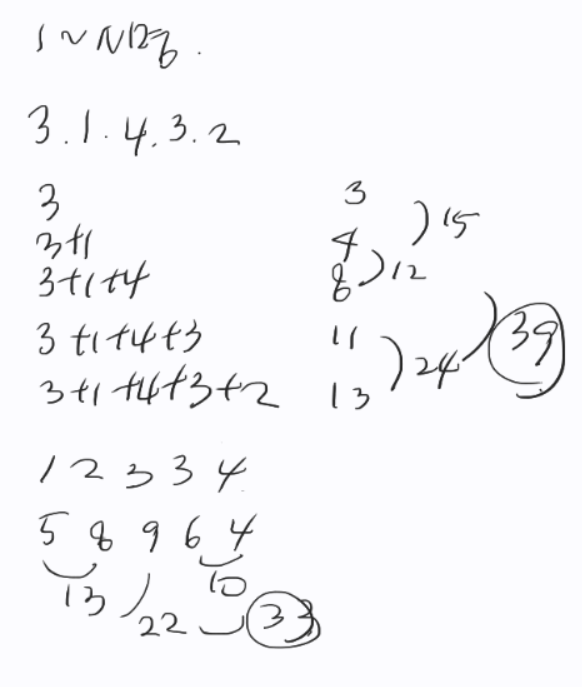 1 ~ N 명.
3. 1. 4. 3. 2
3 3
3+1 4 ) 15
3+1+4 8 ) 12
3+1+4+3 11
3+1+4+3+2 13 ) 24 ) 39
1 2 3 3 4
5 8 9 6 4
13 10
22 33